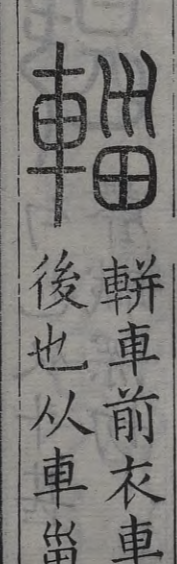 輜
軿車前衣車
後也从車甾